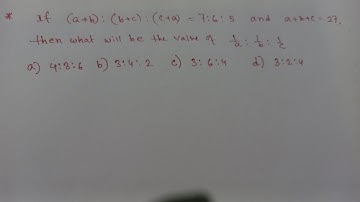 * If (a+b) : (b+c) : (c+a) = 7:6:5 and a+b+c = 27,
then what will be the value of 1/a : 1/b : 1/c
a) 4:3:6 b) 3:4:2 c) 3:6:4 d) 3:2:4